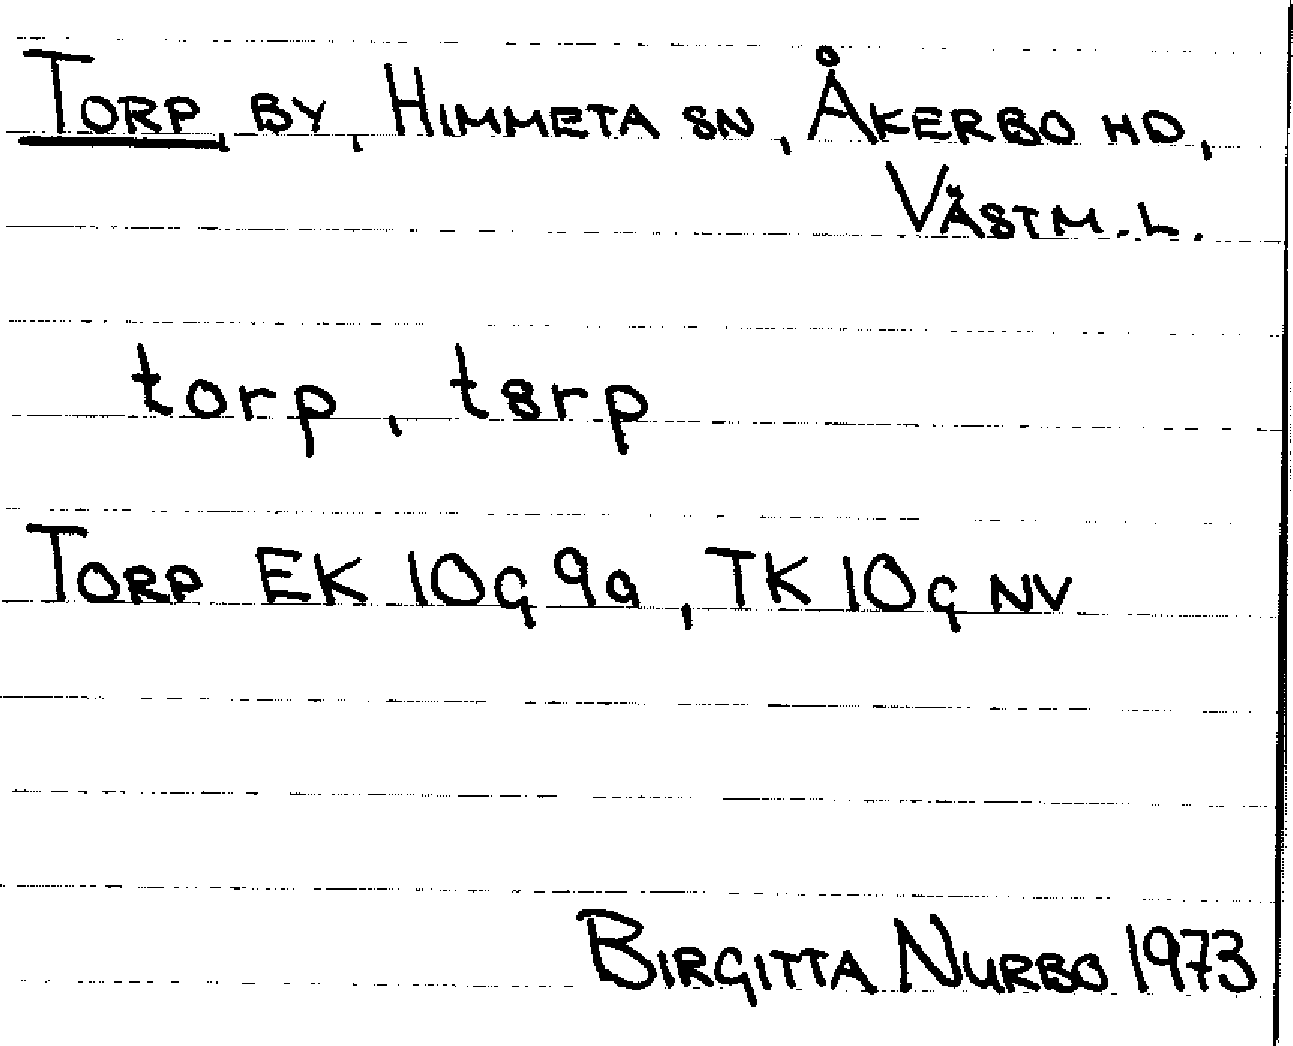 TORP, BY, HIMMETA SN, ÅKERBO HD,
VÄSTM. L.
torp, t8rp
TORP EK 10G 9a, TK 10G NV
BIRGITTA NURBO 1973